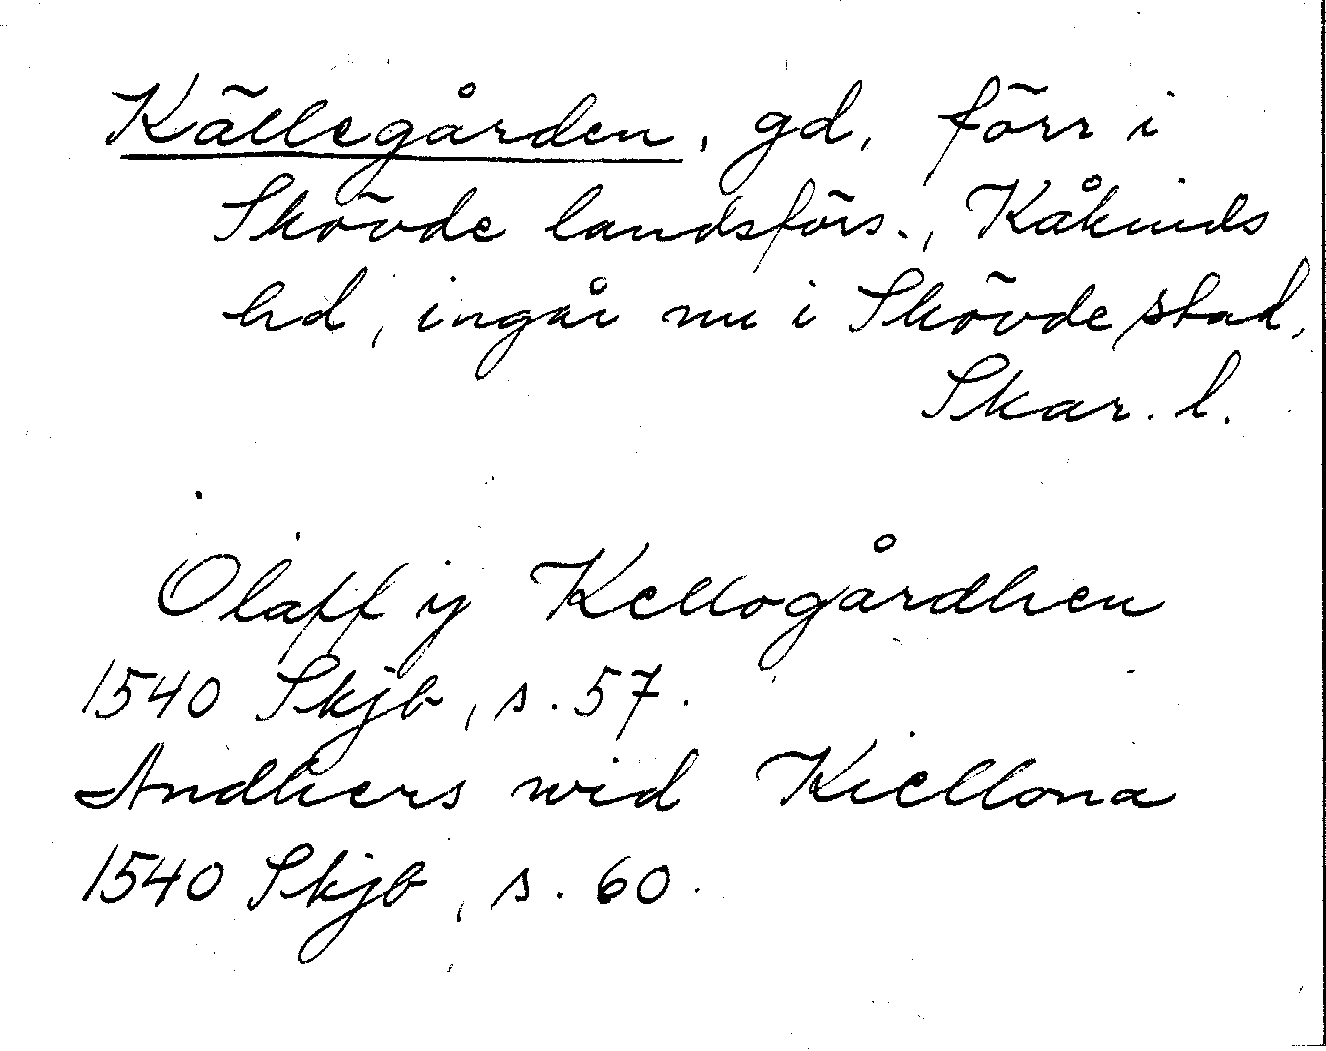 Källegården, gd, förr i
Skövde landsförs., Kåkinds
hd, ingår nu i Skövde stad,
Skar. l.
Olaff ij Kellogårdhen
1540 Skjb, s. 57.
Andhers wid Kiellona
1540 Skjb, s. 60.